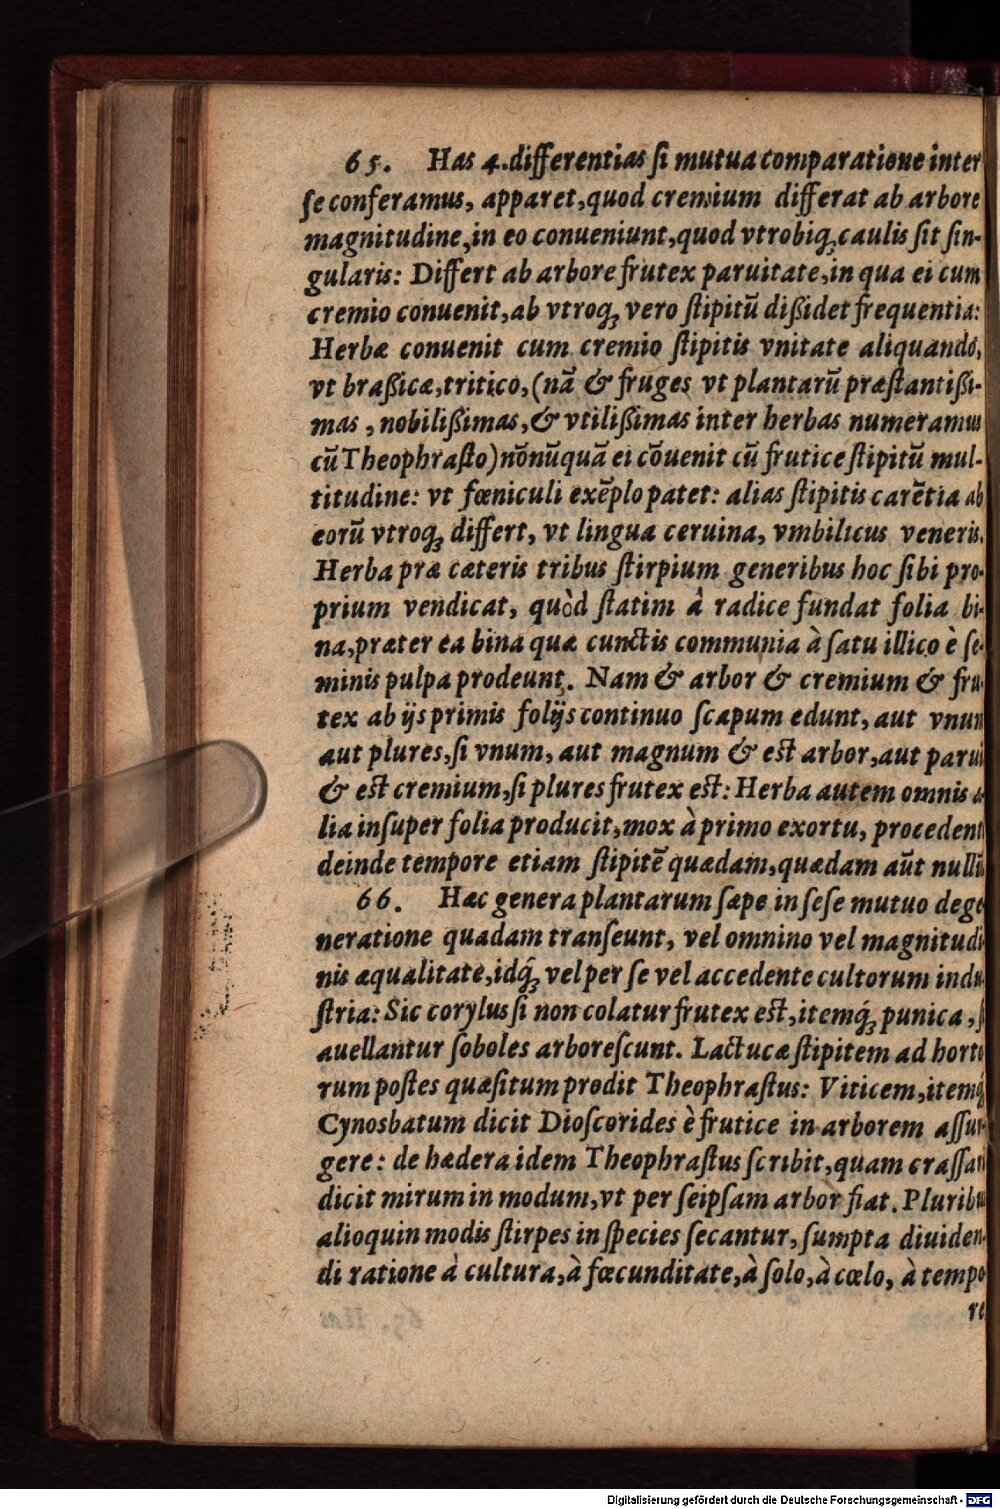 65. Has 4.differentias ſi mutua comparatione inter
ſe conferamus, apparet,quod cremium differat ab arbore
magnitudine,in eo conueniunt,quod vtrobiq́ꝫ caulis ſit ſin-
gularis: Differt ab arbore frutex paruitate,in qua ei cum
cremio conuenit,ab vtroqꝫ vero ſtipitũ dißidet frequentia:
Herbæ conuenit cum cremio ſtipitis vnitate aliquando,
vt braßicæ,tritico,(nã & fruges vt plantarũ præſtantißi-
mas , nobilißimas,& vtilißimas inter herbas numeramus
cũ Theophraſto)nõnũquã ei cõuenit cũ frutice ſtipitũ mul-
titudine: vt fœniculi exẽplo patet: alias ſtipitis carẽtia ab
eorũ vtroqꝫ differt, vt lingua ceruina, vmbilicus veneris.
Herba præ cæteris tribus ſtirpium generibus hoc ſibi pro-
prium vendicat, quòd ſtatim à radice fundat folia bi-
na,præter ea bina quæ cunctis communia à ſatu illico è ſe-
minis pulpa prodeunt. Nam & arbor & cremium & fru-
tex ab ijs primis folijs continuo ſcapum edunt, aut vnum
aut plures,ſi vnum, aut magnum & est arbor,aut
& est cremium,ſi plures frutex est: Herba autem omnis
lia inſuper folia producit,mox à primo exortu, procedent
deinde tempore etiam ſtipitẽ quædam,quædam aũt nullũ
66. Hæc genera plantarum ſæpe in ſeſe mutuo dege
neratione quadam tranſeunt, vel omnino vel magnitudi
nis æqualitate,idq́ꝫ vel per ſe vel accedente cultorum indu-
ſtria: Sic corylus ſi non colatur frutex est,itemq́ꝫ punica ,
auellantur ſoboles arboreſcunt. Lactucæ ſtipitem ad horto
rum poſtes quæſitum prodit Theophraſtus: Viticem,itemq́
Cynosbatum dicit Dioſcorides è frutice in arborem aſſur-
gere: de hædera idem Theophraſtus ſcribit,quam craſſari
dicit mirum in modum,vt per ſeipſam arbor fiat. Pluribus
alioquin modis ſtirpes in ſpecies ſecantur, ſumpta diuiden-
di ratione à cultura,à fœcunditate,à ſolo,à cœlo, à tempo
re
Digitalisierung gefördert durch die Deutsche Forschungsgemeinschaft - DFG